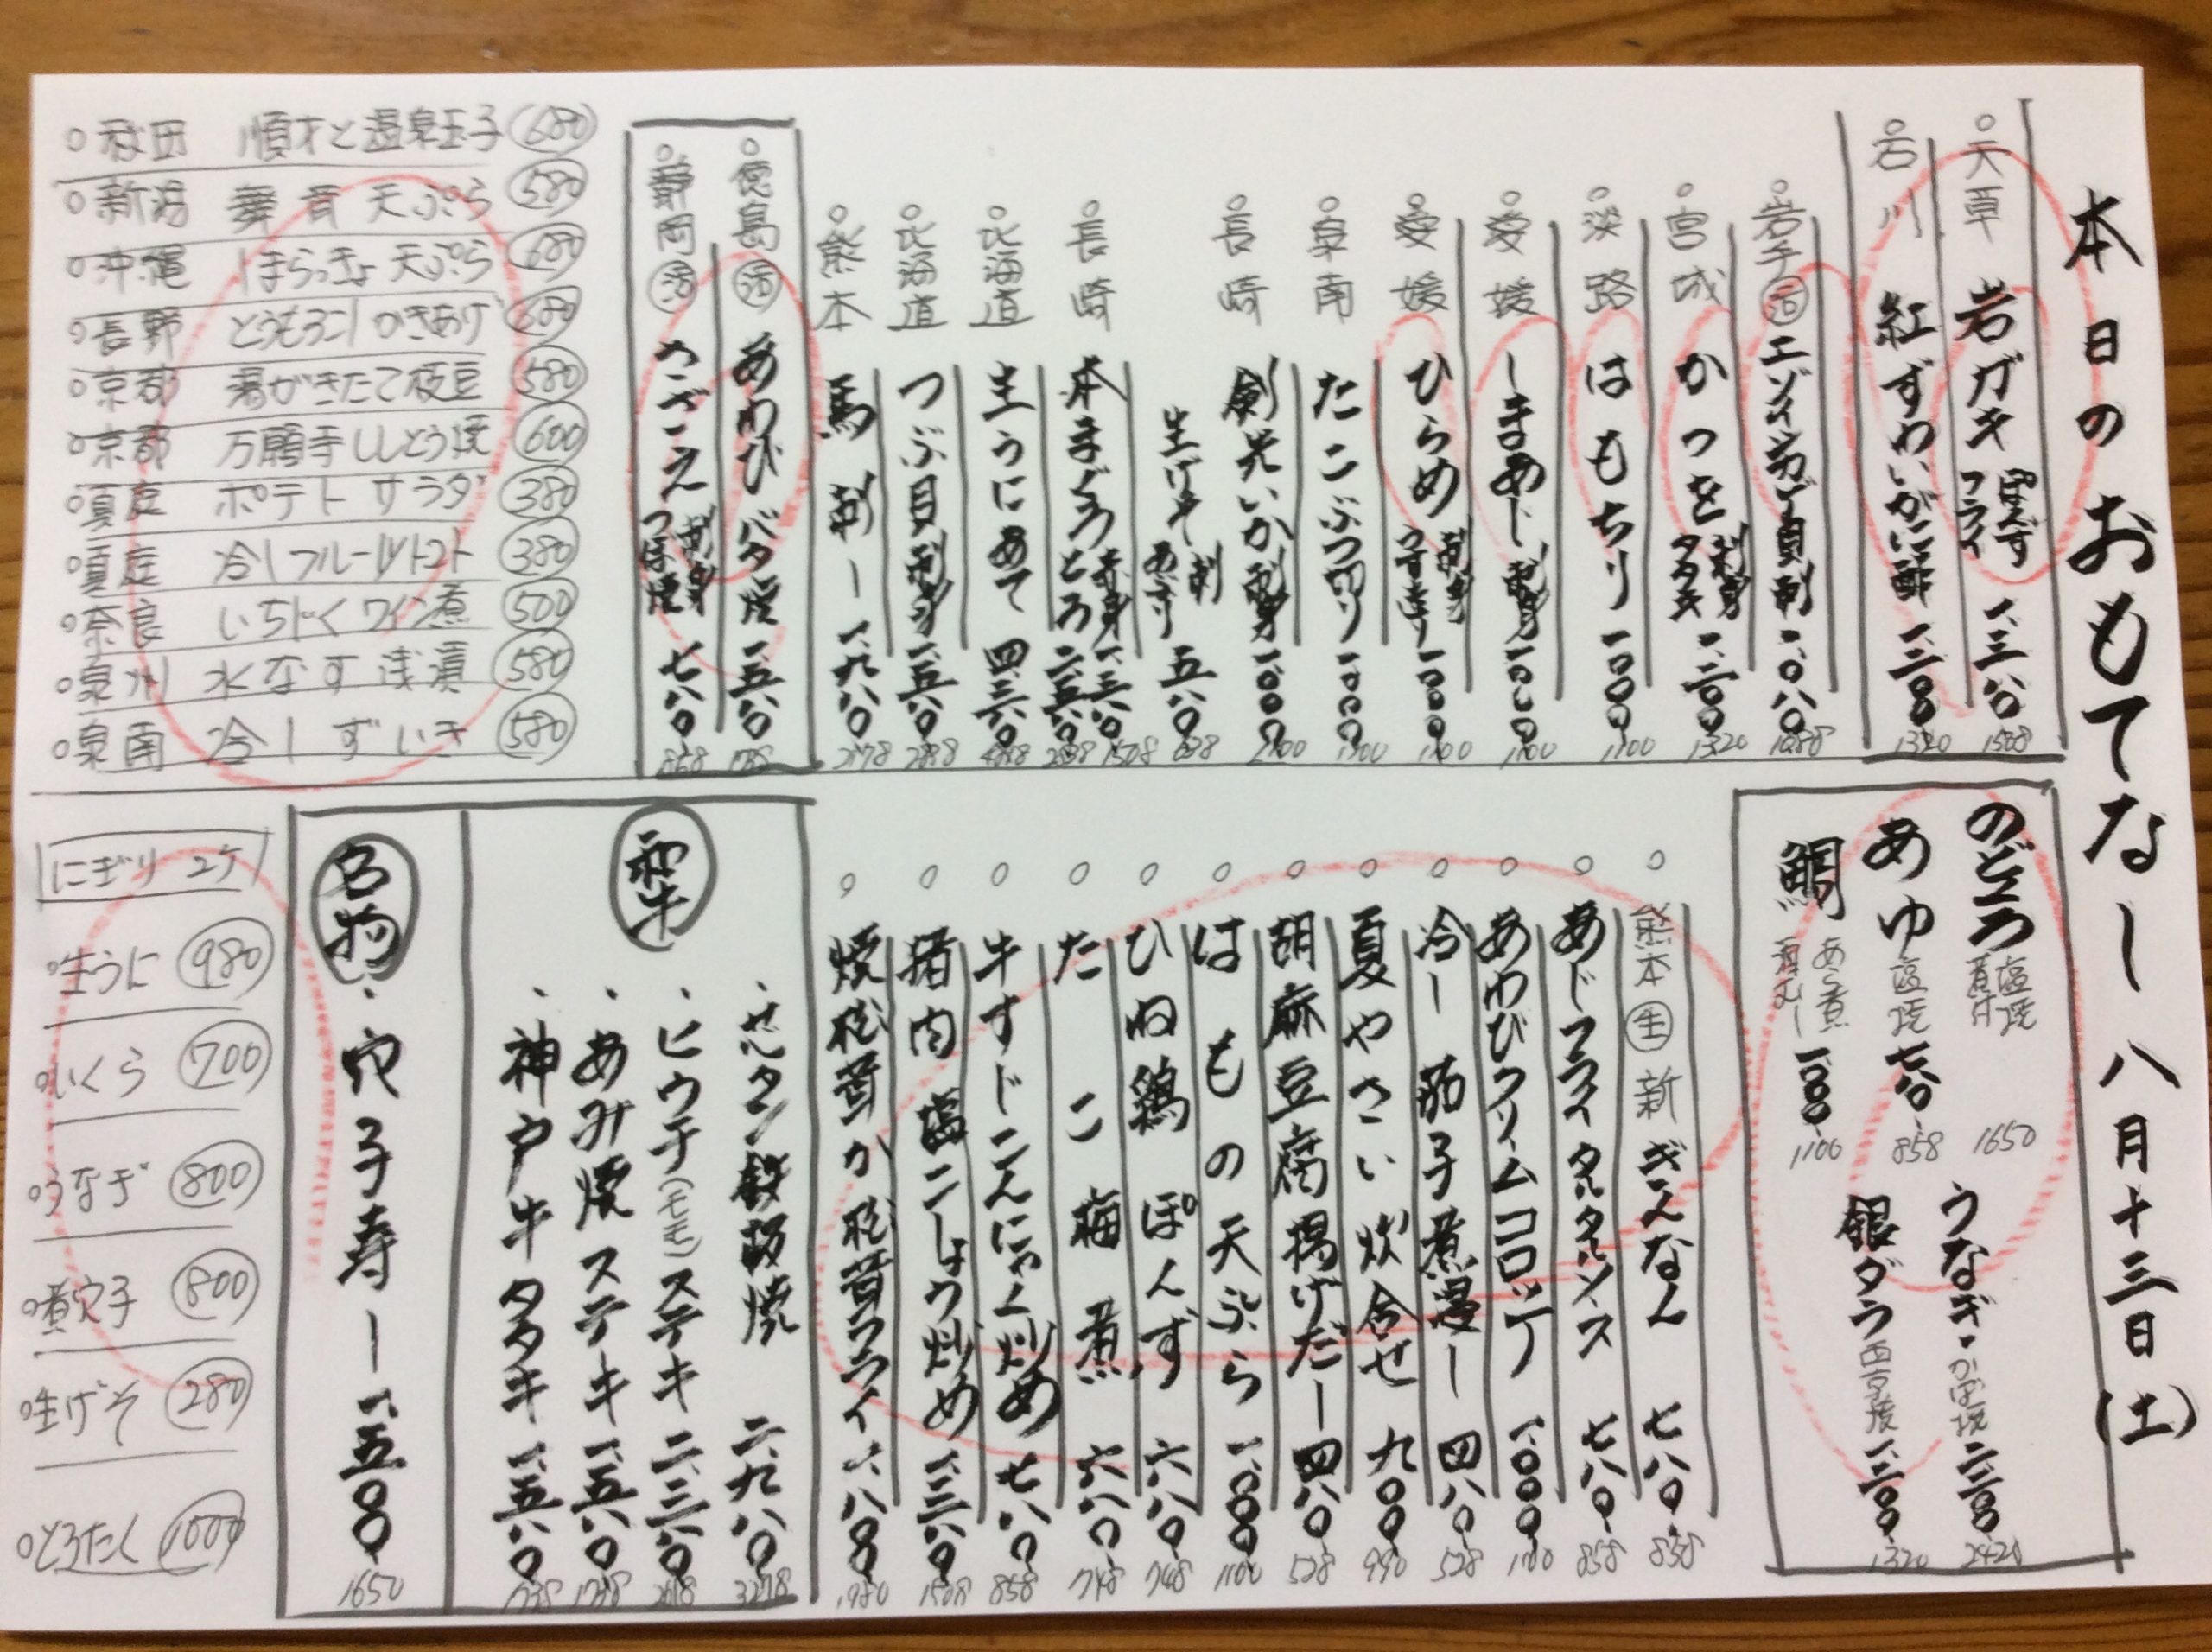 本日のおもてなし 八月十三日(土)
○天草 岩ガキ ぽんず フライ 一、三八〇 1508
○石川 紅ずわいがに酢 一、二〇〇 1320
○岩手 活 エゾイシカゲ貝刺 1088
○宮城 かつを 刺身 タタキ 一、二〇〇 1320
○淡路 はもちり 一、〇〇〇 1100
○愛媛 しまあじ 刺身 一、〇〇〇 1100
○愛媛 ひらめ 刺身 うす造り 一、〇〇〇 1100
○泉南 たこぶつ切り 一、〇〇〇 1100
○長崎 剣先いか刺身 1100
生げそ 刺 あぶり 五八〇 638
○長崎 本まぐろ 赤身 一、三八〇 1508 とろ 二、五八〇 2838
○北海道 生うにあて 四、三八〇
○北海道 つぶ貝刺身
○熊本 馬刺し 一、九八〇 2178
○徳島 活 あわび バタ焼 一、五八〇 1738
○静岡 活 さざえ 刺身 つぼ焼 七八〇 858
○秋田 順才と温泉玉子 680
○新潟 舞茸天ぷら 580
○沖縄 しまらっきょ天ぷら 680
○長野 とうもろこしかきあげ 680
○京都 湯がきたて枝豆 580
○京都 万願寺ししとう焼 600
○真庭 ポテトサラダ 380
○真庭 冷しフルーツトマト 380
○奈良 いちじくワイン煮 500
○泉州 水なす浅漬 580
○泉南 冷しずいき 580
のどぐろ 塩焼 煮付 1650
あゆ 塩焼 七八〇 858
鯛 あら煮 酒むし 一、〇〇〇 1100
うなぎ かば焼 二、二〇〇 2420
銀ダラ 西京焼 一、二〇〇 1320
○熊本 生 新 ぎんなん 七八〇 858
○あじフライタルタルソース 七八〇 858
○あわびクリームコロッケ 一、〇〇〇 1100
○冷し茄子煮浸し 四八〇 528
○夏やさい炊合せ 九〇〇 990
○胡麻豆腐揚げだし 四八〇 528
○はもの天ぷら 一、〇〇〇 1100
○ひね鶏ぽんず 六八〇 748
○たこ梅煮 六八〇 748
○牛すじこんにゃく炒め 七八〇 858
○猪肉塩こしょう炒め 一、三八〇 1508
○焼松茸か松茸フライ 一、八〇〇 1980
和牛
・せんタン鉄板焼 二、九八〇 3278
・ヒウチ(モモ)ステーキ 二、三八〇 2618
・あみ焼ステーキ 一、五八〇 1738
・神戸牛タタキ 一、五八〇 1738
名物
・穴子寿し 一、五〇〇 1650
にぎり 2ケ
○生うに 980
○いくら 700
○うなぎ 800
○煮穴子 800
○生げそ 280
○とろたく 1000